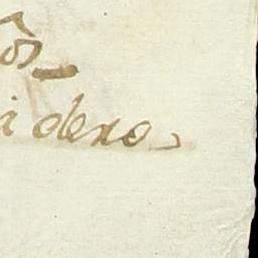 os
idero